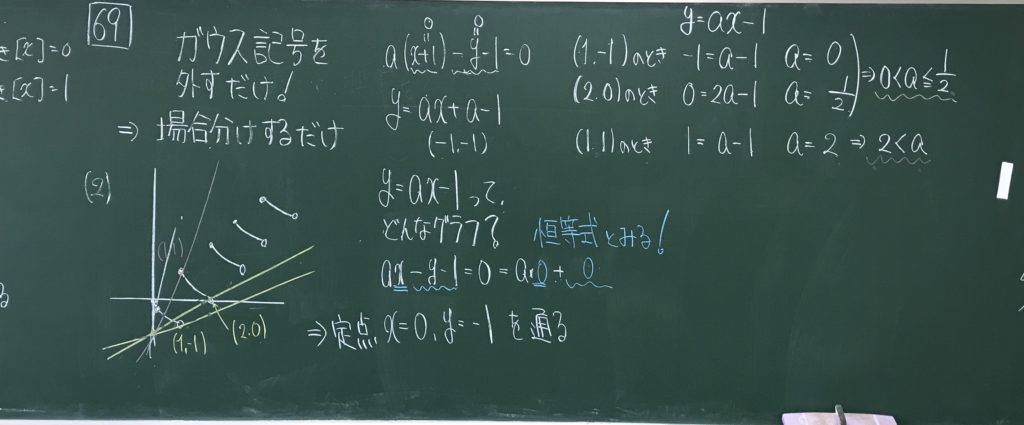 き[x]=0
き[x]=1
69
ガウス記号を
外すだけ!
⇒ 場合分けするだけ
(2)
(1,1)
(1,-1)
(2.0)
0 0
a(x+1)-y-1=0
y=ax+a-1
(-1,-1)
y=ax-1って、
どんなグラフ?
恒等式とみる!
ax-y-1=0=a・0+0
⇒定点x=0,y=-1を通る
y=ax-1
(1,-1)のとき -1=a-1 a=0
(2.0)のとき 0=2a-1 a=1/2 ⇒0<a≦1/2
(1.1)のとき 1=a-1 a=2 ⇒2<a